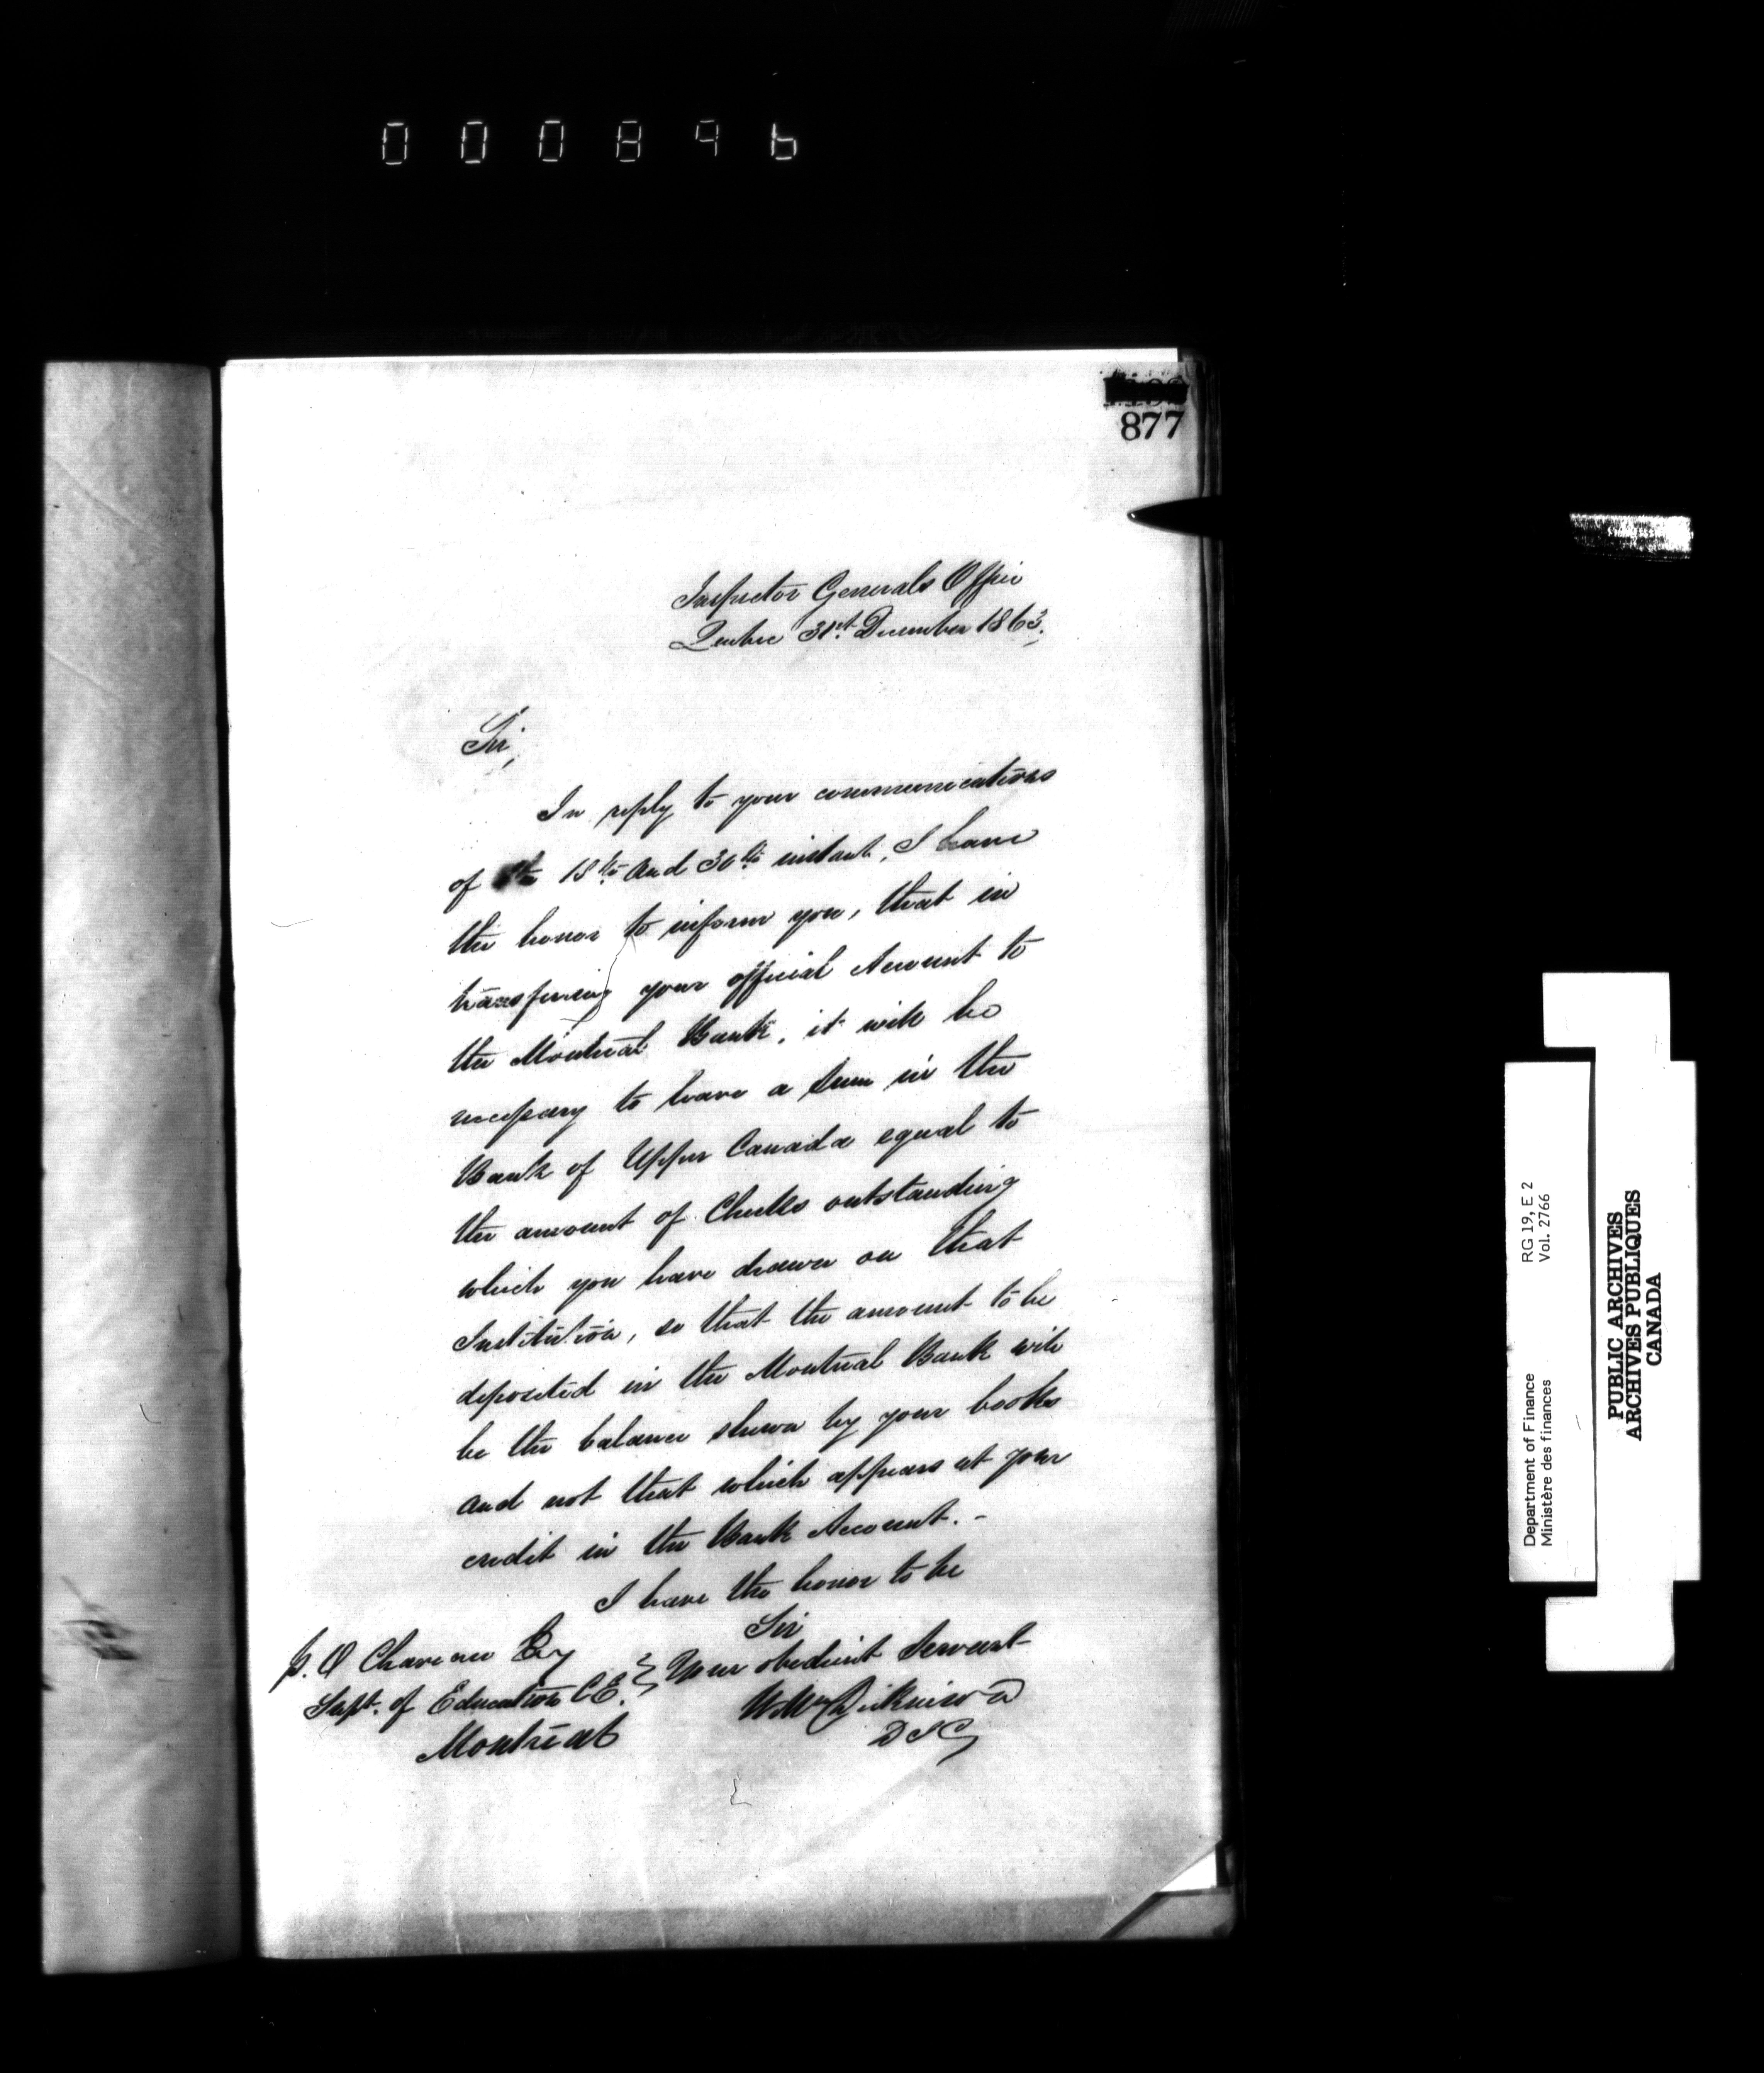 000896
877
Inspector Generals Office
Quebec 31st December 1863.
Sir,
In reply to your communications
of the 18th and 30th instant, I have
the honor to inform you, that in
transfering your official Account to
the Montreal Bank, it will be
necessary to leave a sum in the
Bank of Upper Canada equal to
the amount of Checks outstanding
which you have drawn on that
Institution, so that the amount to be
deposited in the Montreal Bank will
be the balance shewn by your books
and not that which appears at your
credit in the Bank Account. -
I have the honor to be
Sir
Your obedient Servant
Wm Dickinson
D I G
P. O Chaveau Esq
Supt. of Education C E.
Montreal
Department of Finance RG 19, E 2
Ministère des finances Vol. 2766
PUBLIC ARCHIVES
ARCHIVES PUBLIQUES
CANADA